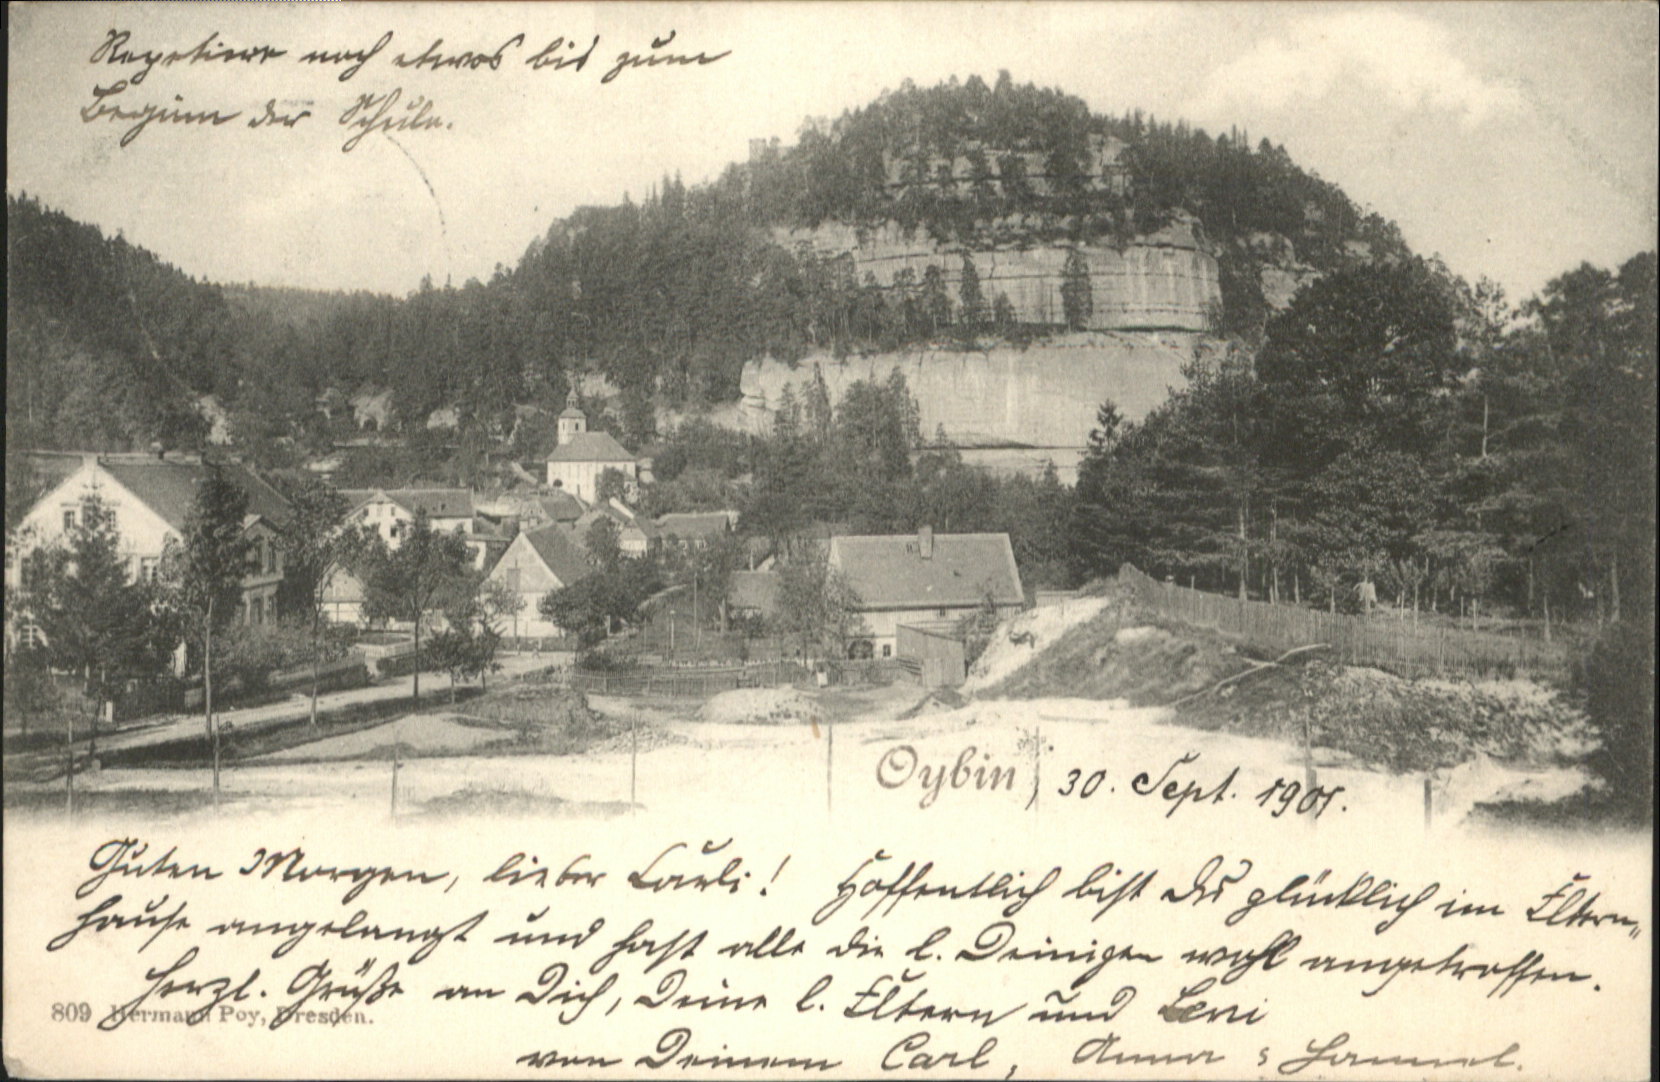 Repetiere noch etwas bis zum
Beginn der Schule.
Oybin, 30. Sept. 1901.
Guten Morgen, lieber Pauli! Hoffentlich bist Du glücklich im Eltern-
hause angelangt und hast alle die l. Deinigen wohl angetroffen.
Herzl. Grüße an Dich, Deine l. Eltern und Leni
809 Hermann Poy, Dresden.
von Deinem Carl, Anna